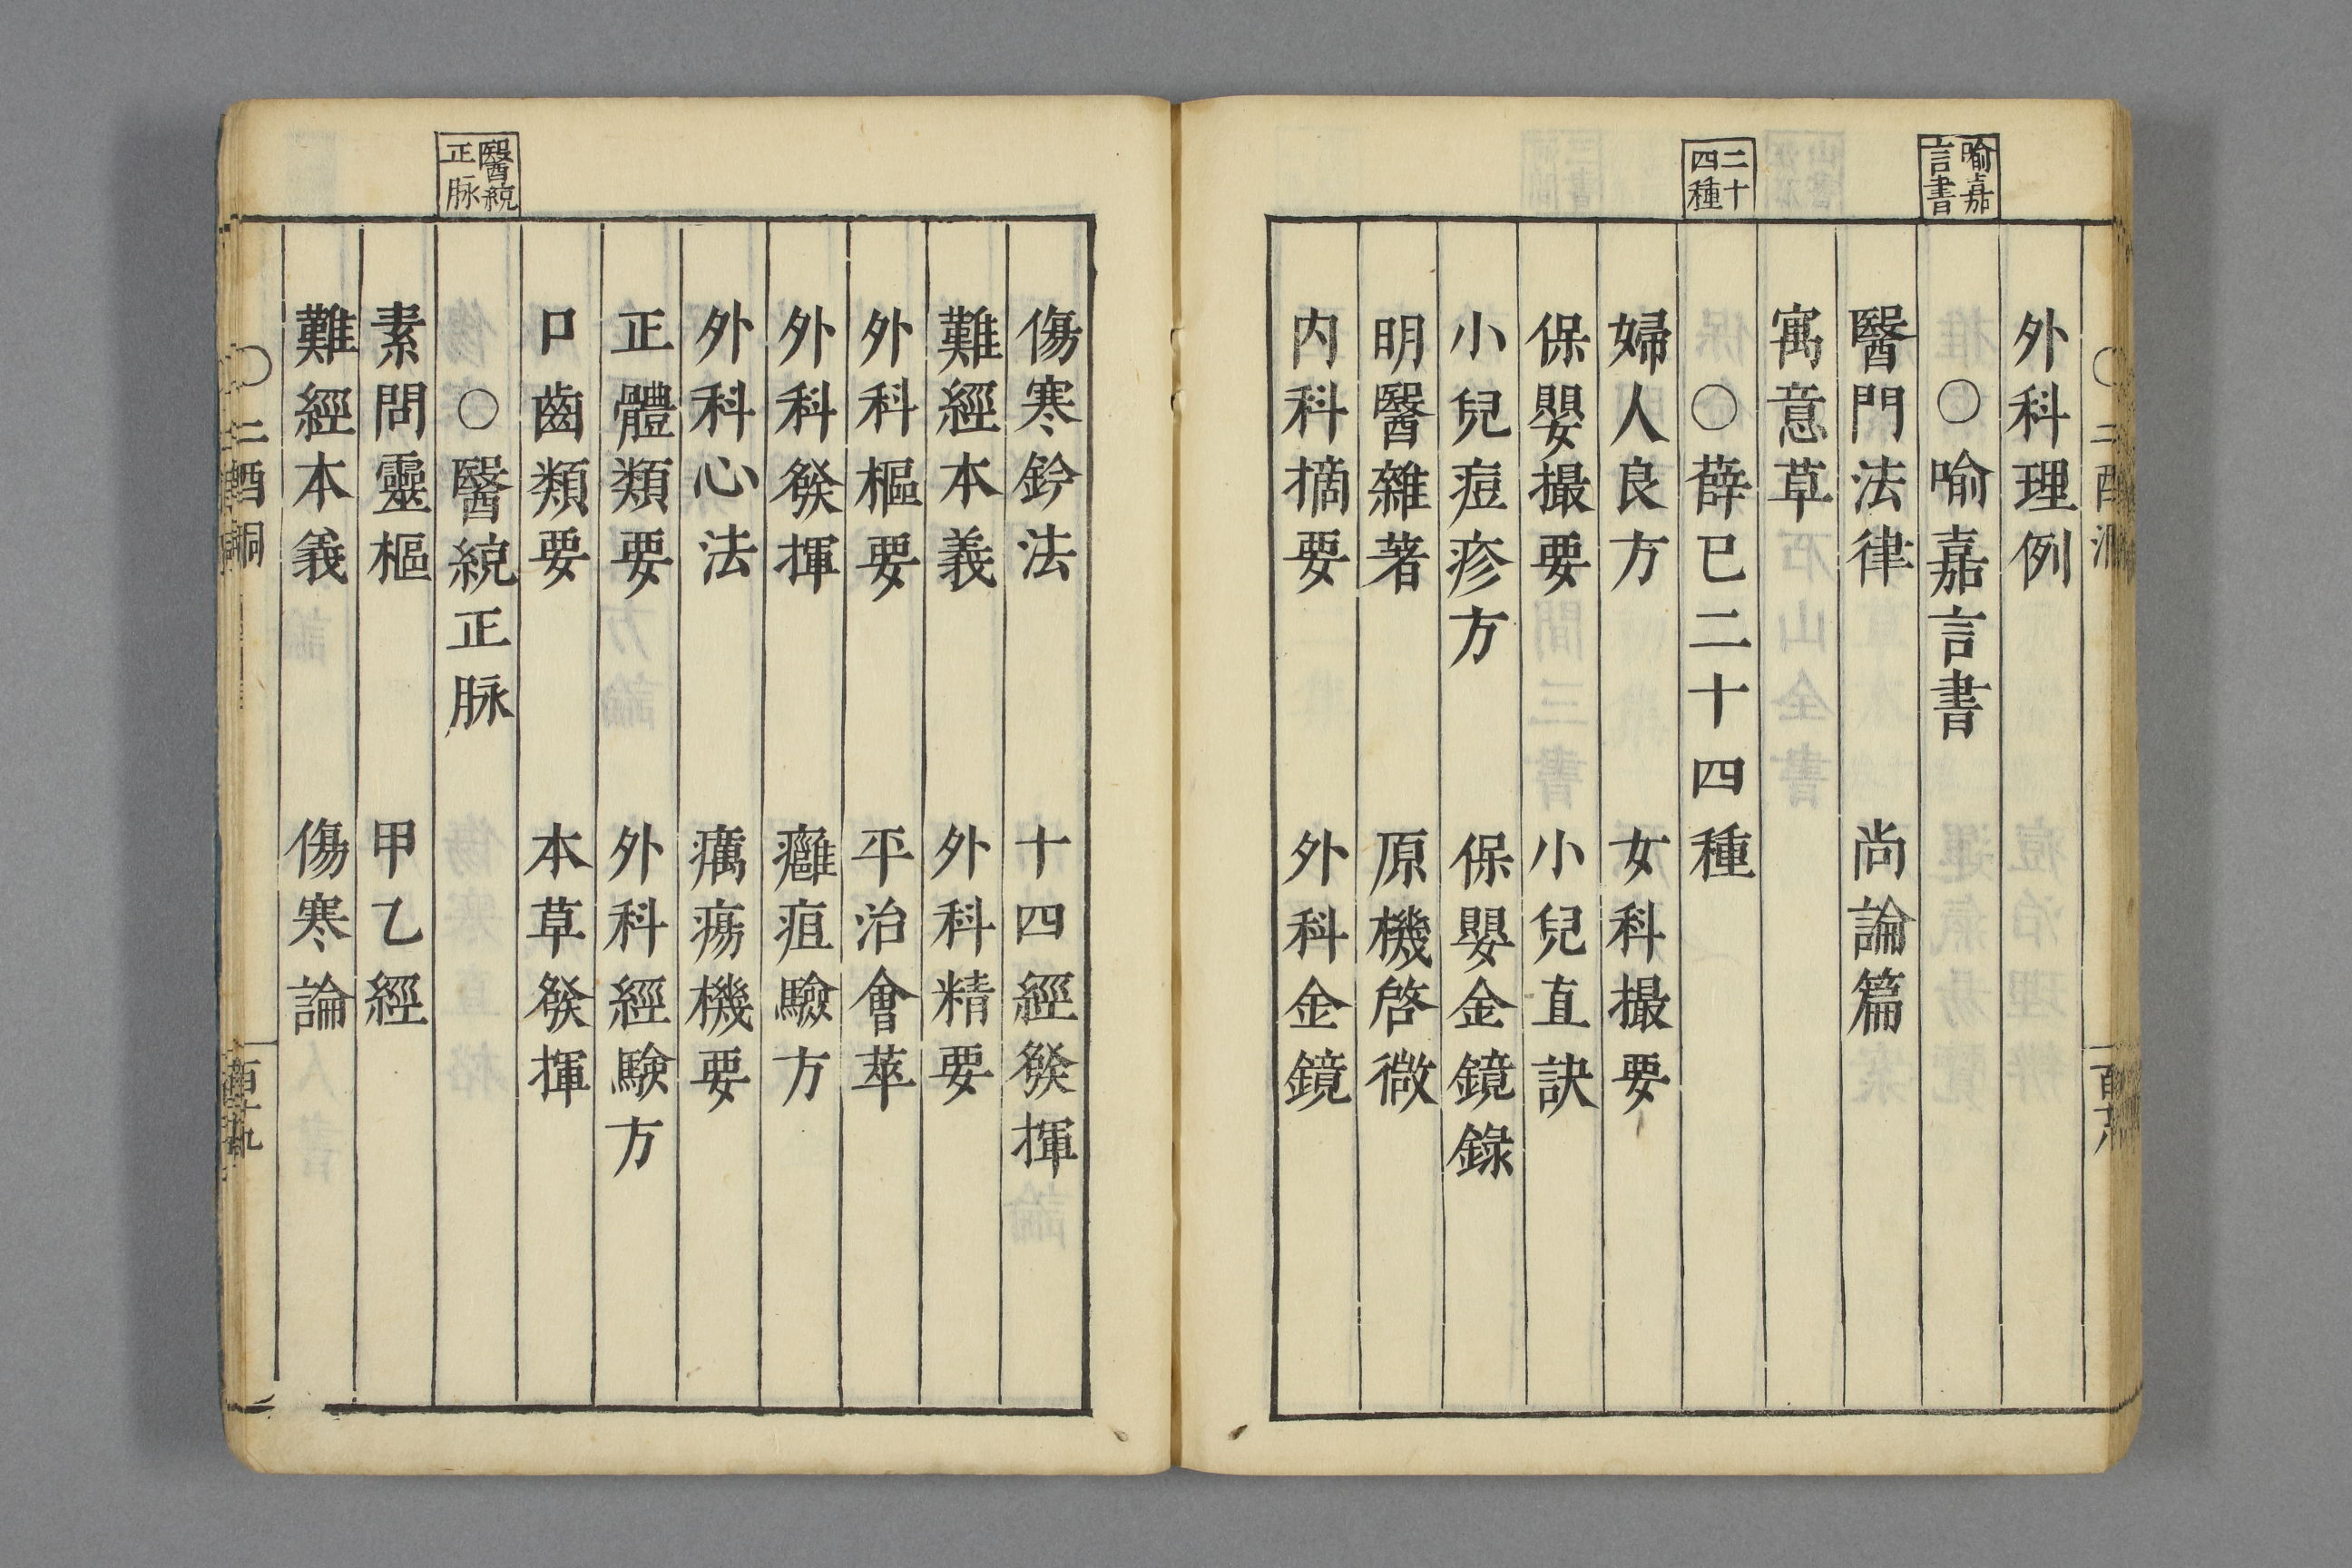 喻嘉
言書
二十
四種
外科理例
○喻嘉言書
醫門法律　尚論篇
寓意草
○薛已二十四種
婦人良方　女科撮要
保嬰撮要　小兒直訣
小兒痘疹方　保嬰金鏡錄
明醫雜著　原機啓微
内科摘要　外科金鏡
醫統
正脉
傷寒鈐法　十四經發揮
難經本義　外科精要
外科樞要　平治會萃
外科發揮　癰疽驗方
外科心法　癘瘍機要
正體類要　外科經驗方
口齒類要　本草發揮
○醫統正脉
素問靈樞　甲乙經
難經本義　傷寒論